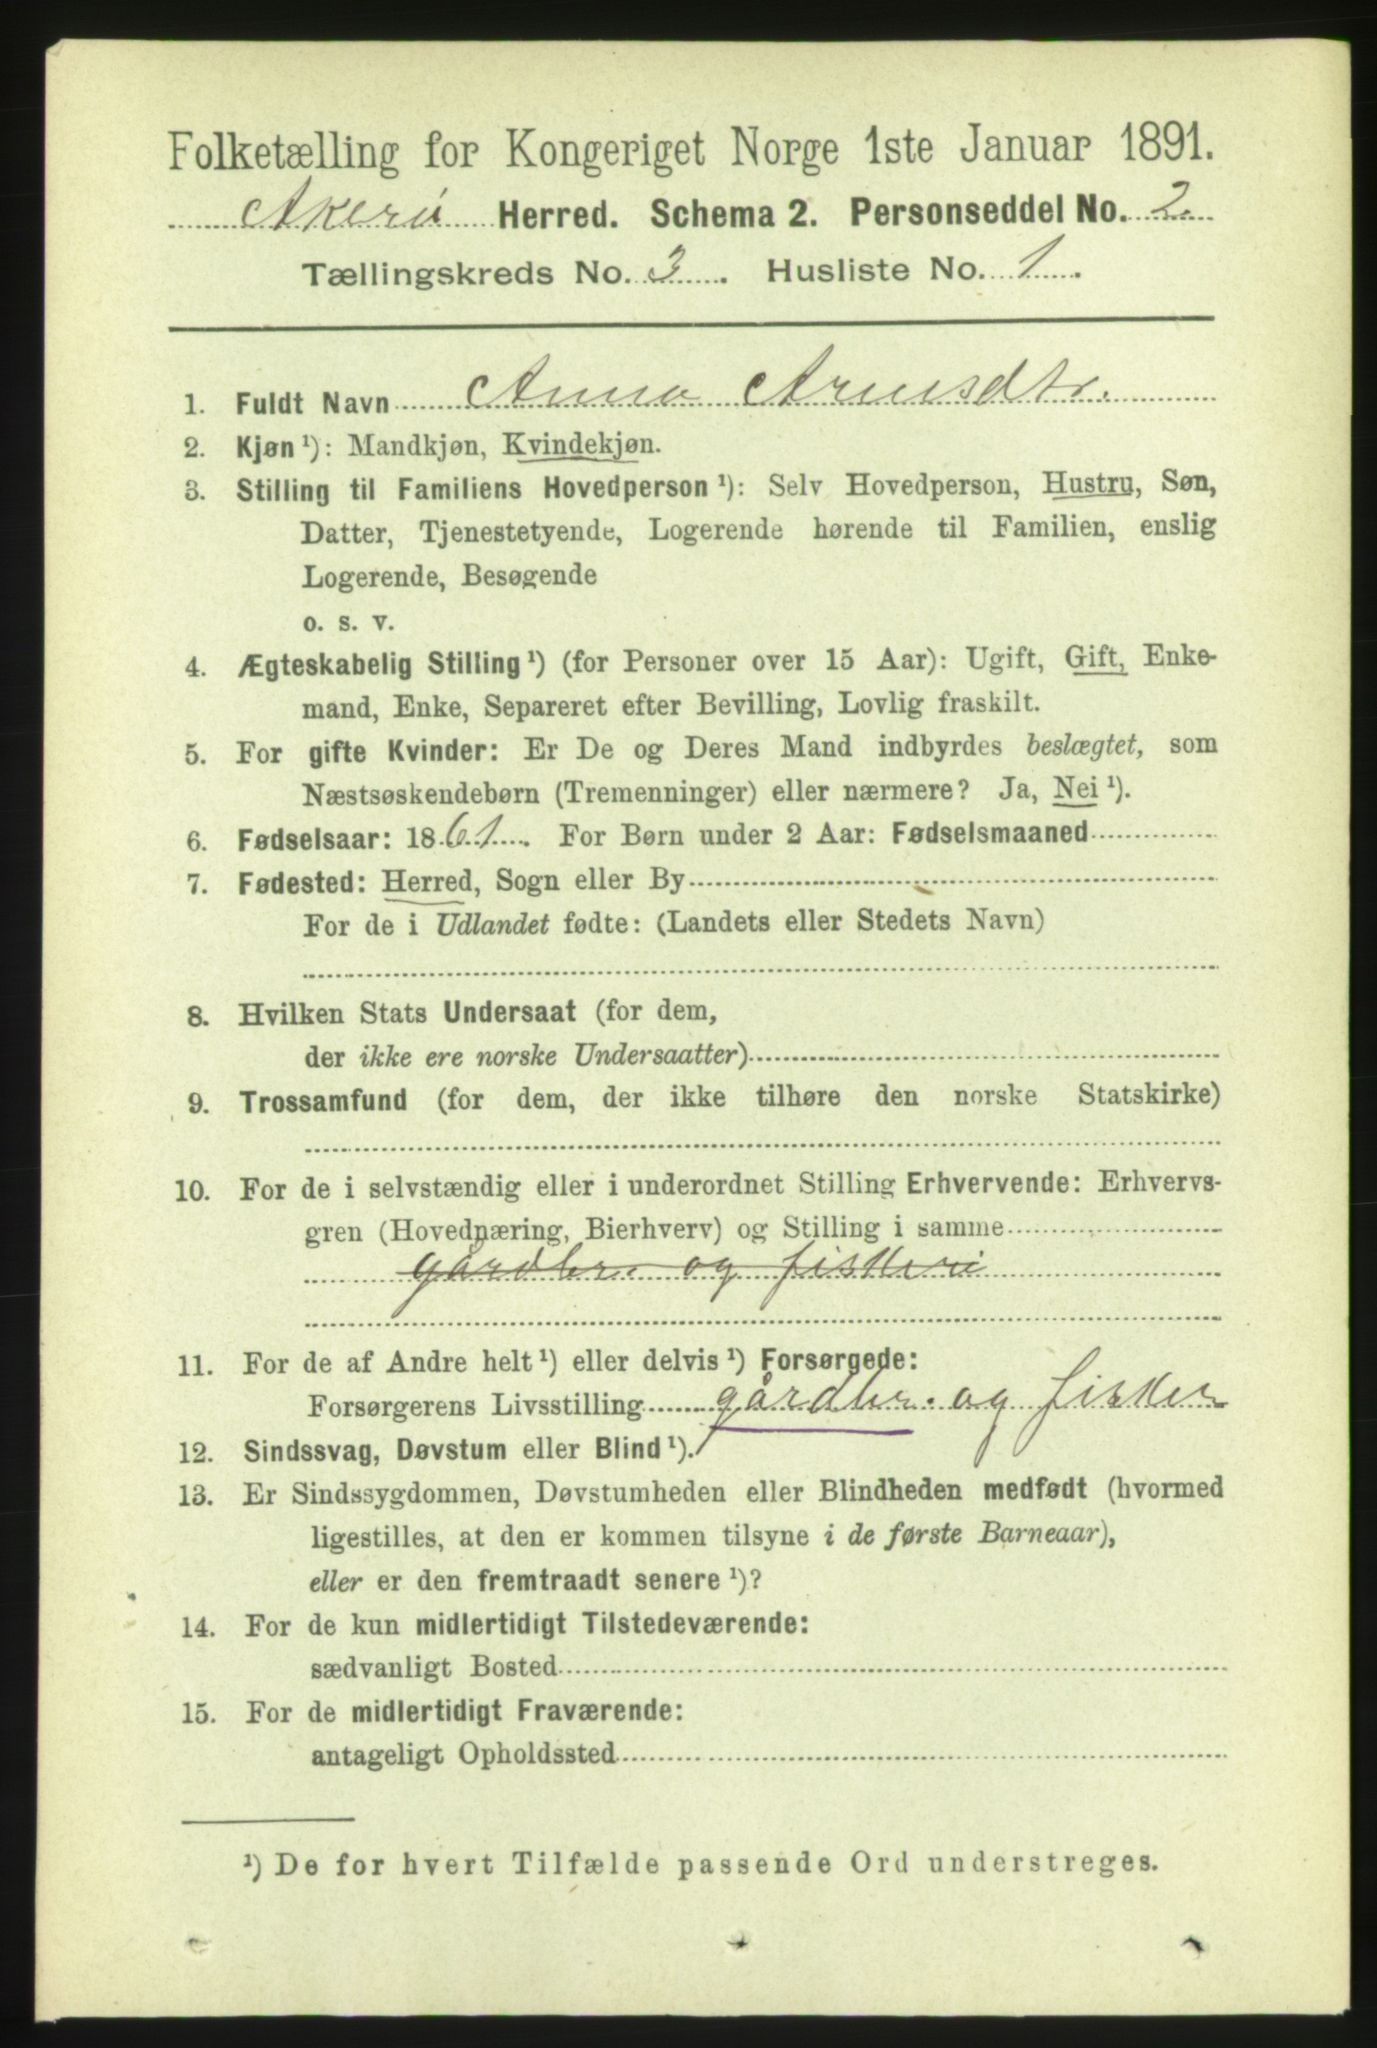 Folketælling for Kongeriget Norge 1ste Januar 1891.
Akerø Herred. Schema 2. Personseddel No. 2.
Tællingskreds No. 3. Husliste No. 1.
1. Fuldt Navn Anna Arntsdtr.
2. Kjøn ¹): Mandkjøn, Kvindekjøn.
3. Stilling til Familiens Hovedperson ¹): Selv Hovedperson, Hustru, Søn,
Datter, Tjenestetyende, Logerende hørende til Familien, enslig
Logerende, Besøgende
o. s. v.
4. Ægteskabelig Stilling ¹) (for Personer over 15 Aar): Ugift, Gift, Enke-
mand, Enke, Separeret efter Bevilling, Lovlig fraskilt.
5. For gifte Kvinder: Er De og Deres Mand indbyrdes beslægtet, som
Næstsøskendebørn (Tremenninger) eller nærmere? Ja, Nei ¹).
6. Fødselsaar: 1861. For Børn under 2 Aar: Fødselsmaaned
7. Fødested: Herred, Sogn eller By
For de i Udlandet fødte: (Landets eller Stedets Navn)
8. Hvilken Stats Undersaat (for dem,
der ikke ere norske Undersaatter)
9. Trossamfund (for dem, der ikke tilhøre den norske Statskirke)
10. For de i selvstændig eller i underordnet Stilling Erhvervende: Erhvervs-
gren (Hovednæring, Bierhverv) og Stilling i samme
gårdbr. og fiskeri
11. For de af Andre helt ¹) eller delvis ¹) Forsørgede:
Forsørgerens Livsstilling gårdbr. og fisker
12. Sindssvag, Døvstum eller Blind ¹).
13. Er Sindssygdommen, Døvstumheden eller Blindheden medfødt (hvormed
ligestilles, at den er kommen tilsyne i de første Barneaar),
eller er den fremtraadt senere ¹)?
14. For de kun midlertidigt Tilstedeværende:
sædvanligt Bosted
15. For de midlertidigt Fraværende:
antageligt Opholdssted
¹) De for hvert Tilfælde passende Ord understreges.